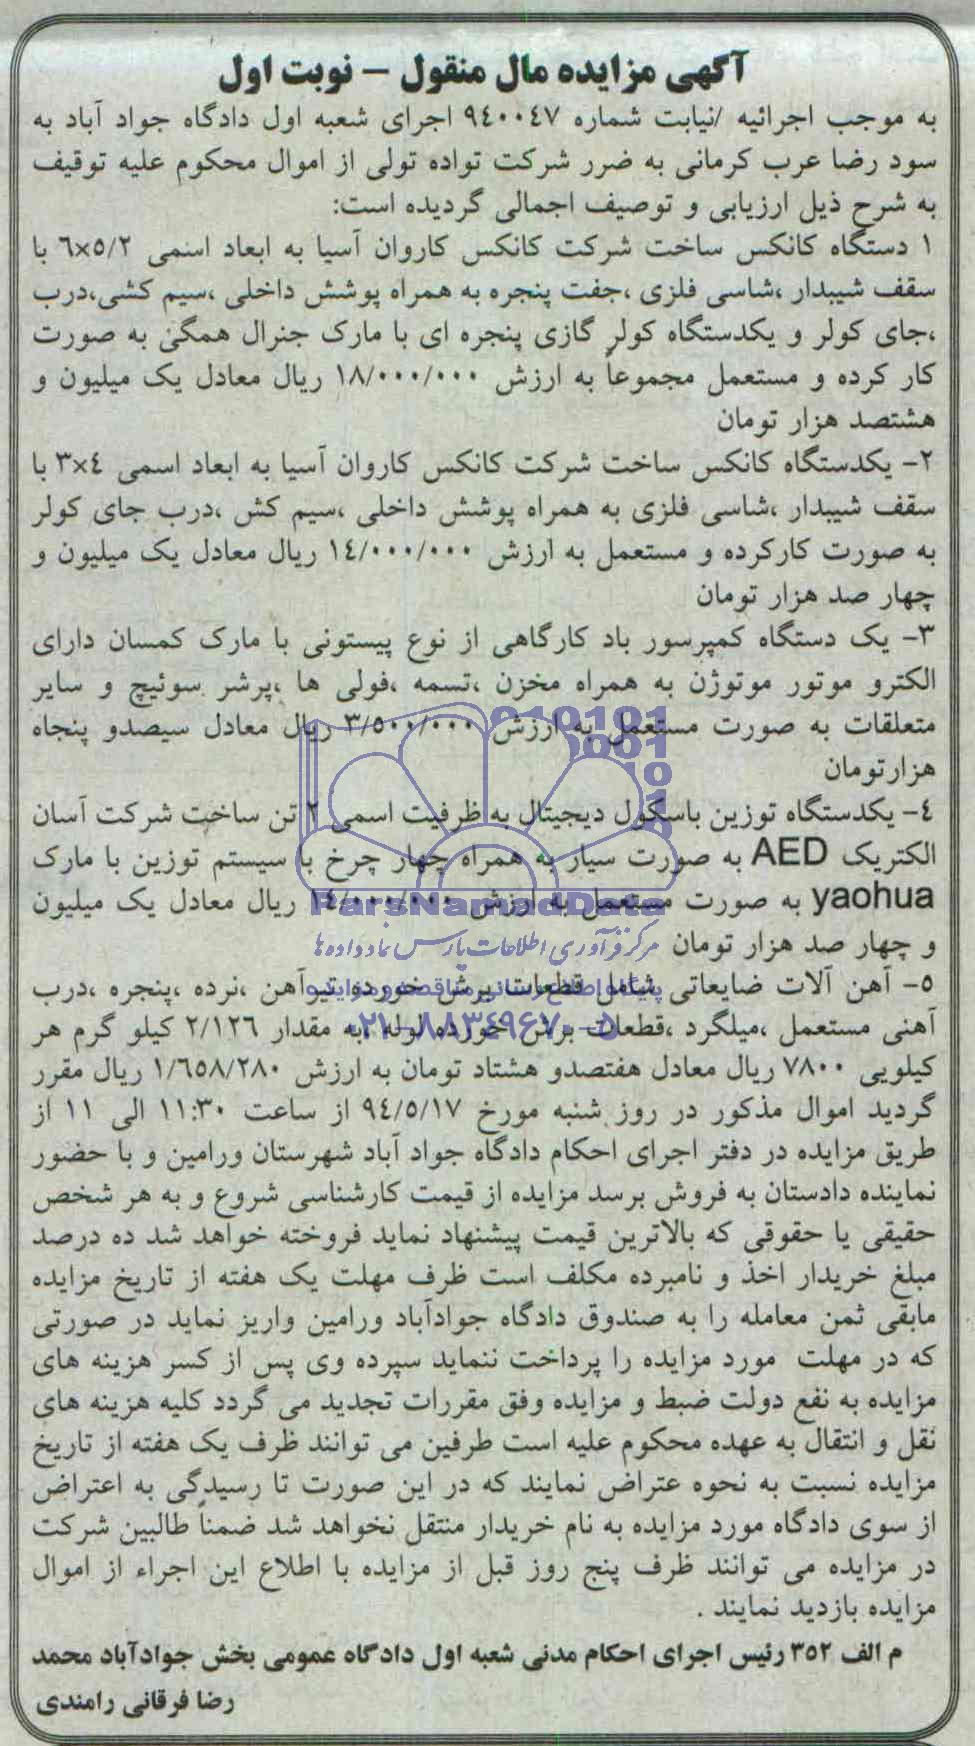 آگهی مزایده مال منقول – نوبت اول
به موجب اجرائیه /نیابت شماره ۹٤۰۰٤۷ اجرای شعبه اول دادگاه جواد آباد به
سود رضا عرب کرمانی به ضرر شرکت تواده تولی از اموال محکوم علیه توقیف
به شرح ذیل ارزیابی و توصیف اجمالی گردیده است:
۱ دستگاه کانکس ساخت شرکت کانکس کاروان آسیا به ابعاد اسمی ٥/۲×٦ با
سقف شیبدار ،شاسی فلزی ،جفت پنجره به همراه پوشش داخلی ،سیم کشی،درب
،جای کولر و یکدستگاه کولر گازی پنجره ای با مارک جنرال همگی به صورت
کار کرده و مستعمل مجموعاً به ارزش ۱۸/۰۰۰/۰۰۰ ریال معادل یک میلیون و
هشتصد هزار تومان
۲- یکدستگاه کانکس ساخت شرکت کانکس کاروان آسیا به ابعاد اسمی ٤×۳ با
سقف شیبدار ،شاسی فلزی به همراه پوشش داخلی ،سیم کش ،درب جای کولر
به صورت کارکرده و مستعمل به ارزش ۱٤/۰۰۰/۰۰۰ ریال معادل یک میلیون و
چهار صد هزار تومان
۳- یک دستگاه کمپرسور باد کارگاهی از نوع پیستونی با مارک کمسان دارای
الکترو موتور موتوژن به همراه مخزن ،تسمه ،فولی ها ،پرشر سوئیچ و سایر
متعلقات به صورت مستعمل به ارزش ۳/٥۰۰/۰۰۰ ریال معادل سیصدو پنجاه
هزارتومان
٤- یکدستگاه توزین باسکول دیجیتال به ظرفیت اسمی ۲ تن ساخت شرکت آسان
الکتریک AED به صورت سیار به همراه چهار چرخ با سیستم توزین با مارک
yaohua به صورت مستعمل به ارزش ۱٤/۰۰۰/۰۰۰ ریال معادل یک میلیون
ParsNamadData
و چهار صد هزار تومان
مرکز فرآوری اطلاعات پارس نماد داده ها
٥- آهن آلات ضایعاتی شامل قطعات برش خورده تیرآهن ،نرده ،پنجره ،درب
پایگاه اطلاع رسانی مناقصه و مزایده
آهنی مستعمل ،میلگرد ،قطعات برش خورده لوله ،به مقدار ۲/۱۲٦ کیلو گرم هر
۰۲۱-۸۸۳٤۹٦۷۰-٥
کیلویی ۷۸۰۰ ریال معادل هفتصدو هشتاد تومان به ارزش ۱/٦٥۸/۲۸۰ ریال مقرر
گردید اموال مذکور در روز شنبه مورخ ۹٤/٥/۱۷ از ساعت ۱۱:۳۰ الی ۱۱ از
طریق مزایده در دفتر اجرای احکام دادگاه جواد آباد شهرستان ورامین و با حضور
نماینده دادستان به فروش برسد مزایده از قیمت کارشناسی شروع و به هر شخص
حقیقی یا حقوقی که بالاترین قیمت پیشنهاد نماید فروخته خواهد شد ده درصد
مبلغ خریدار اخذ و نامبرده مکلف است ظرف مهلت یک هفته از تاریخ مزایده
مابقی ثمن معامله را به صندوق دادگاه جوادآباد ورامین واریز نماید در صورتی
که در مهلت مورد مزایده را پرداخت ننماید سپرده وی پس از کسر هزینه های
مزایده به نفع دولت ضبط و مزایده وفق مقررات تجدید می گردد کلیه هزینه های
نقل و انتقال به عهده محکوم علیه است طرفین می توانند ظرف یک هفته از تاریخ
مزایده نسبت به نحوه عتراض نمایند که در این صورت تا رسیدگی به اعتراض
از سوی دادگاه مورد مزایده به نام خریدار منتقل نخواهد شد ضمناً طالبین شرکت
در مزایده می توانند ظرف پنج روز قبل از مزایده با اطلاع این اجراء از اموال
مزایده بازدید نمایند .
م الف ۳٥۲ رئیس اجرای احکام مدنی شعبه اول دادگاه عمومی بخش جوادآباد محمد
رضا فرقانی رامندی